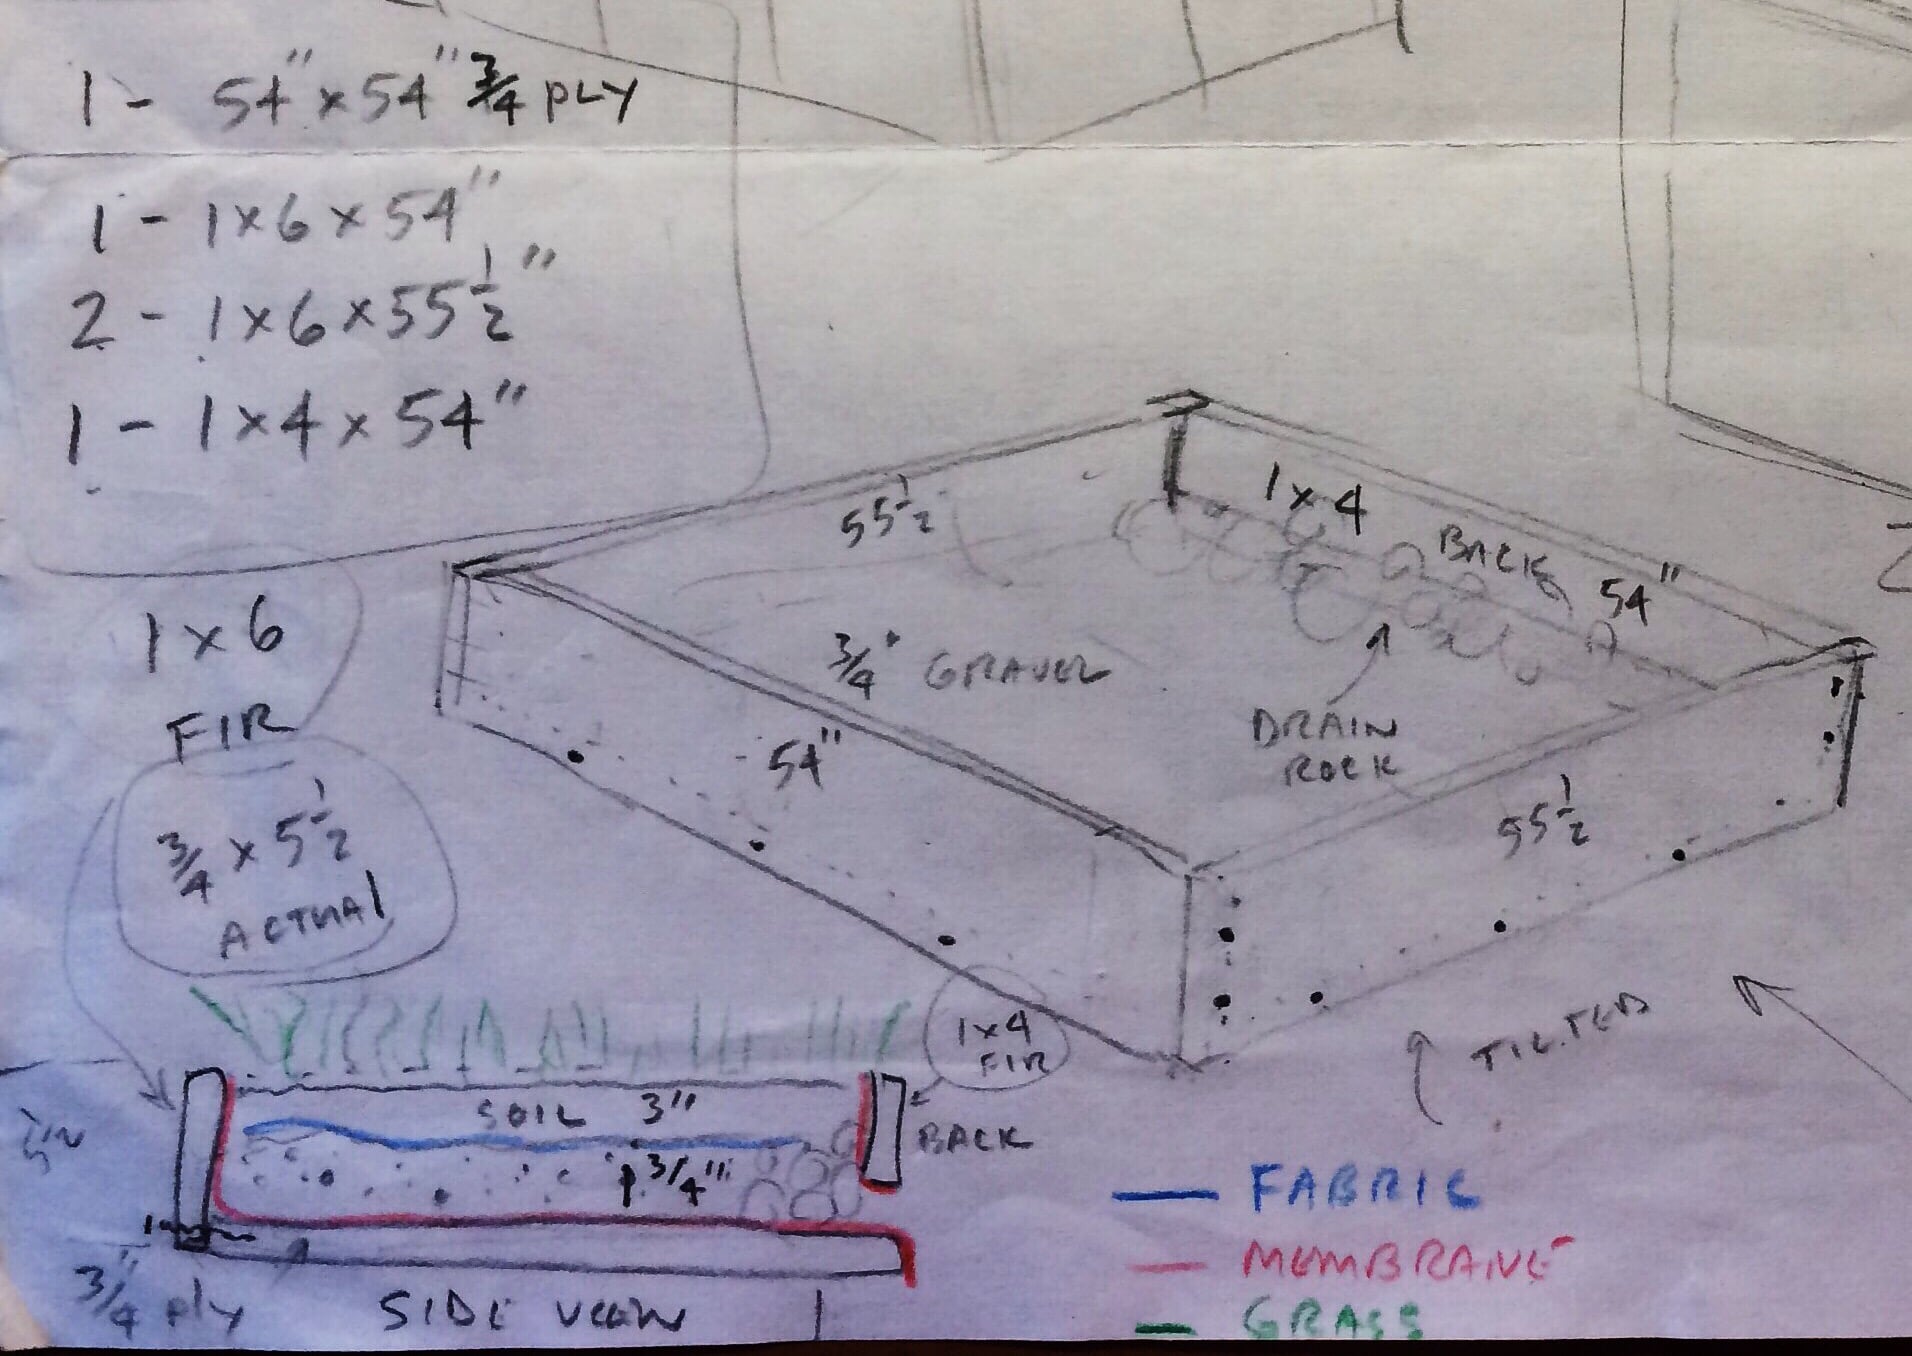 1 - 54" x 54" 3/4 PLY
1 - 1x6 x 54"
2 - 1x6 x 55 1/2"
1 - 1x4 x 54"
1 x 6
FIR
3/4 x 5 1/2
ACTUAL
55 1/2
1x4
BACK
54"
3/4" GRAVEL
DRAIN
ROCK
54"
55 1/2
TILTED
1x4
FIR
SOIL 3"
BACK
3/4"
3/4" Ply
SIDE VIEW
FABRIC
MEMBRANE
GRASS